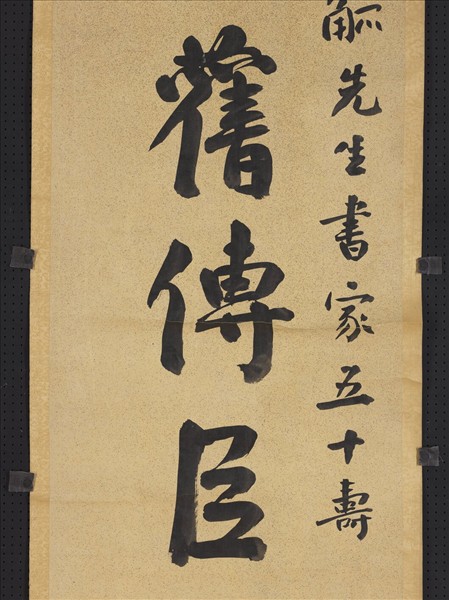 觚先生書家五十壽
舊傳臣